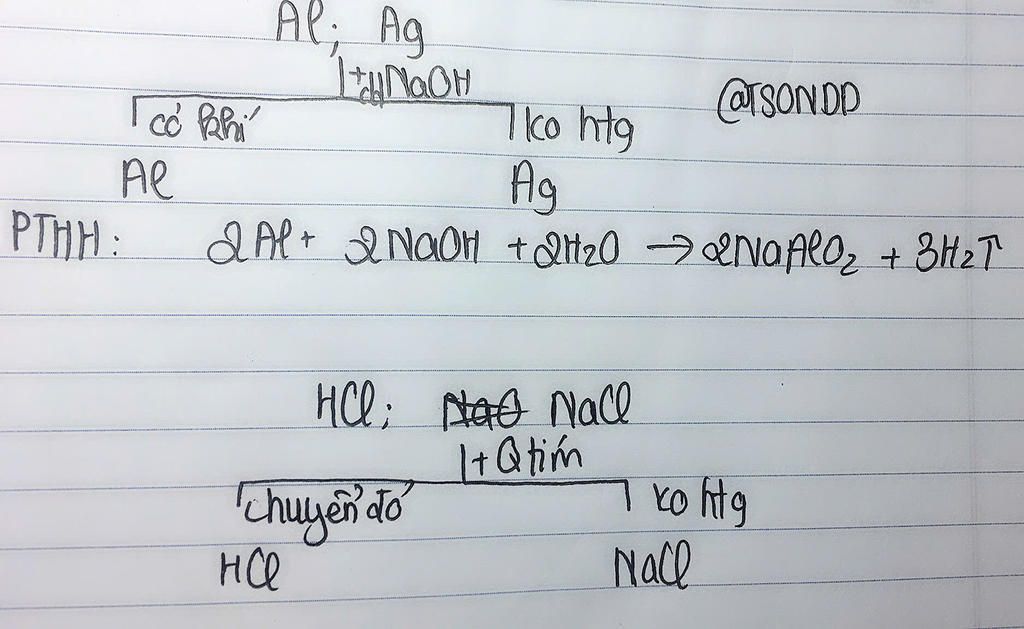 Al; Ag
+ dd NaOH
@TSONDD
có khí
ko htg
Al
Ag
PTHH: 2Al + 2NaOH + 2H2O → 2NaAlO2 + 3H2↑
HCl; NaCl
+ Q tím
chuyển đỏ
ko htg
HCl
NaCl